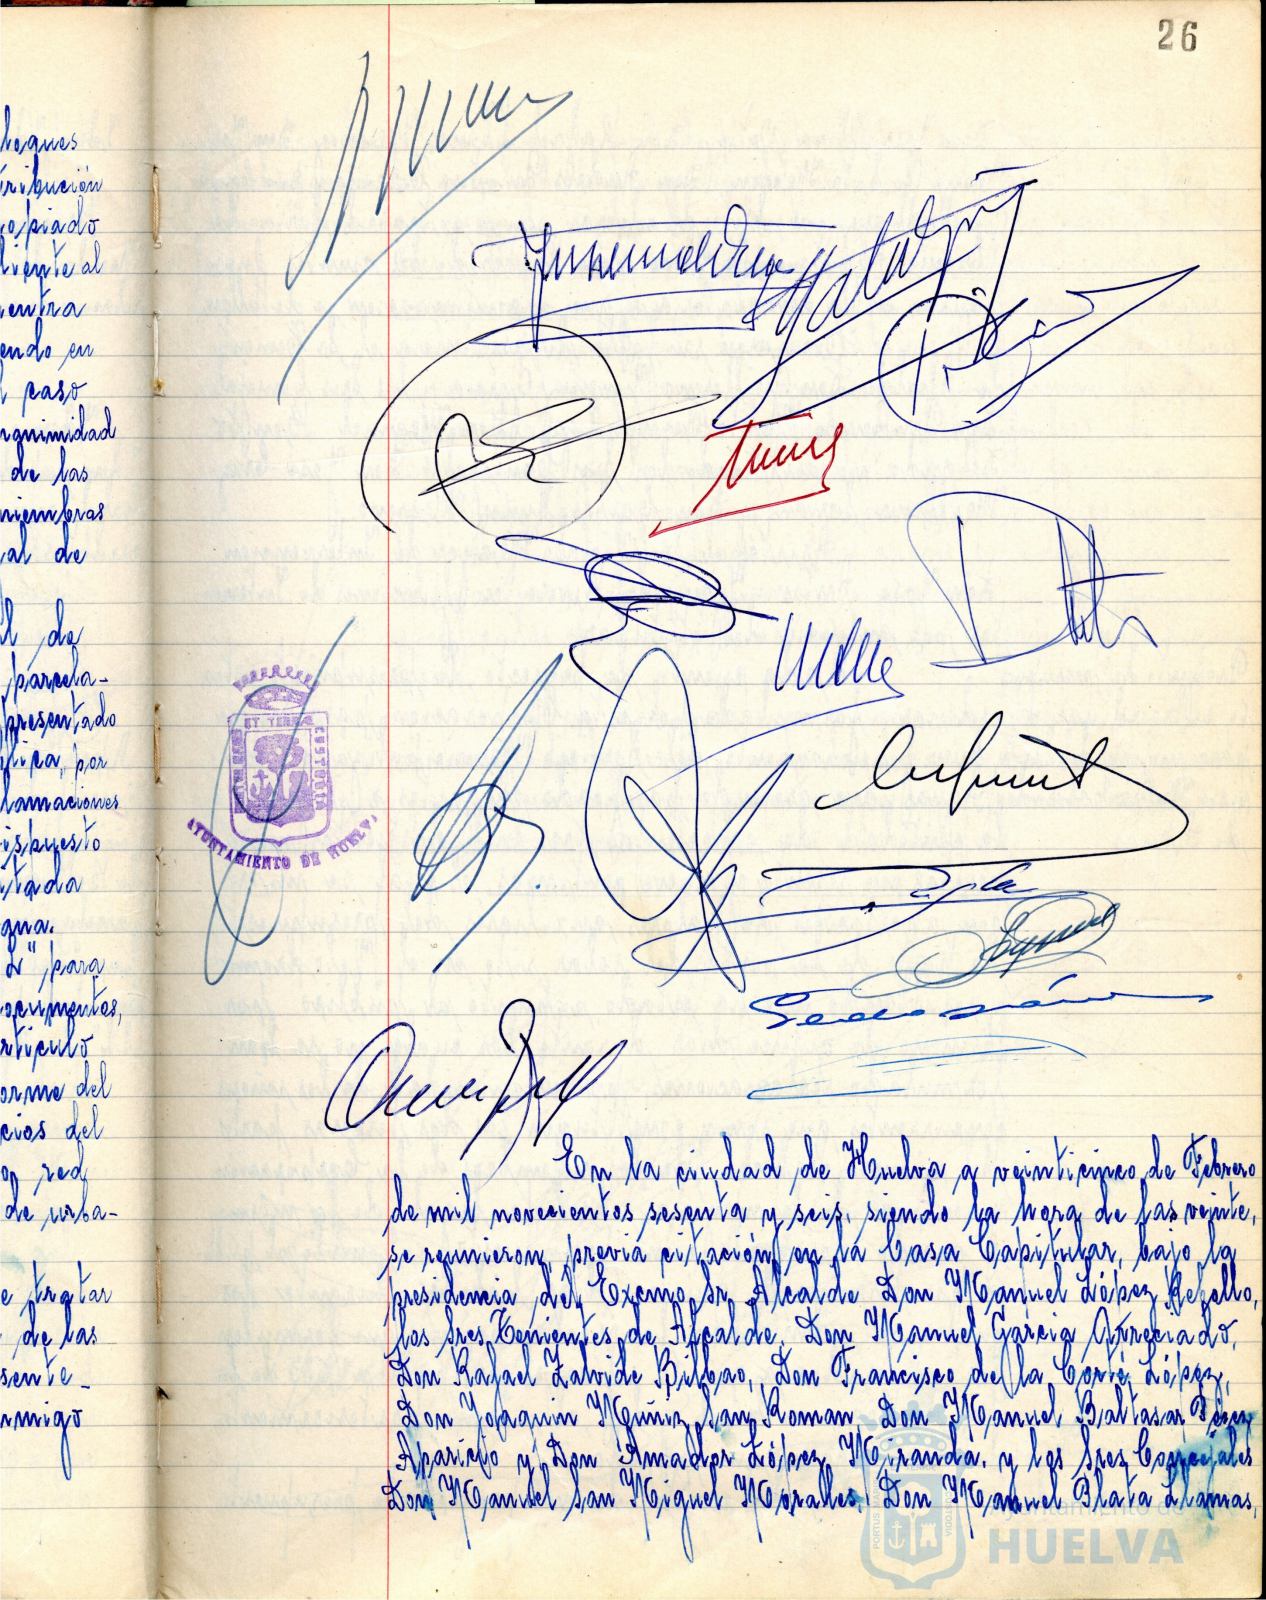 26
loques
tribución
opiado
liente al
entra
endo en
l caso
nanimidad
de las
miembros
al de
l de
parcela-
presentado
fica, por
lamaciones
ispuesto
itada
gua.
L" para
ocumentos,
rtículo
orma del
cios del
o red
de urba-
e tratar
de las
sente-
rmigo
ET TERRÆ
CUSTODIA
AYUNTAMIENTO DE HUELVA
En la ciudad de Huelva a veinticinco de Febrero
de mil novecientos sesenta y seis, siendo la hora de las veinte,
se reunieron, previa citación, en la Casa Capitular, bajo la
presidencia del Excmo. Sr. Alcalde Don Manuel López Rebollo,
los Sres. Tenientes de Alcalde, Don Manuel García Apreciado,
Don Rafael Zalvide Bilbao, Don Francisco de la Corte López,
Don Joaquin Múñiz San Roman, Don Manuel Baltasar Pérez
Aparicio y Don Amador López Miranda, y los Srez Concejales
Don Manuel San Miguel Moralles, Don Manuel Plata Llamas,
Ayuntamiento de
HUELVA